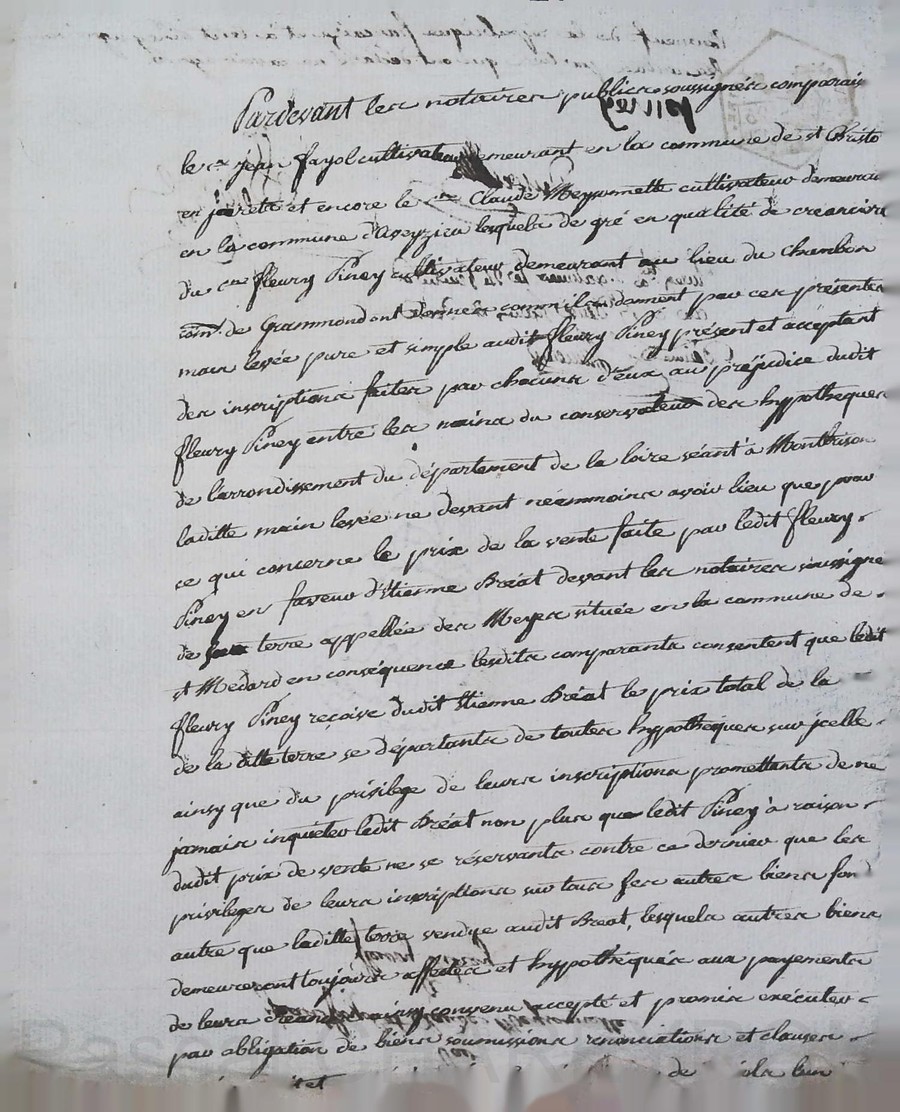 Pardevant les notaires publics soussignés comparais
le cn jean fayol cultivateur demeurant en la commune de st Christo
en jarest et encore le cen Claude Meyromette cultivateur demeura
en la commune d'aveyzieu lesquels de gré en qualité de creanciers
du cen fleury Piney cultivateur demeurant au lieu du Chambon
com. de Grammond ont donnée comm'ils donnent par ces présentes
main levée pure et simple audit fleury Piney présent et acceptant
des inscriptions faites par chacuns d'eux au préjudice dudit
fleury Piney entre les mains du conservateur des hypotheques
de l'arrondissement du département de la loire séant à Montbrison
laditte main levée ne devant néammoins avoir lieu que pour
ce qui concerne le prix de la vente faite par ledit fleury
Piney en faveur d'Etienne Bréat devant les notaires soussigné
de terre appellée des Meyes située en la commune de
st Medard en conséquence lesdits comparants consentent que ledit
fleury Piney reçoive dudit Etienne Bréat le prix total de la
de la ditte terre se départants de toutes hypotheques sur jcelle
ainsy que du privilege de leurs inscriptions promettants de ne
jamais inquiéter ledit Bréat non plus que ledit Piney à raison
dudit prix de vente ne se réservants contre ce dernier que les
privileges de leurs inscriptions sur tous ses autres biens fond
autre que laditte terre vendye audit Breat, lesquels autres biens
demeureront toujours affectés et hypothéqués aux payements
de leurs créances ainsy convenu accepté et promis exécuter
par obligation de biens soumissions renonciations et clauses